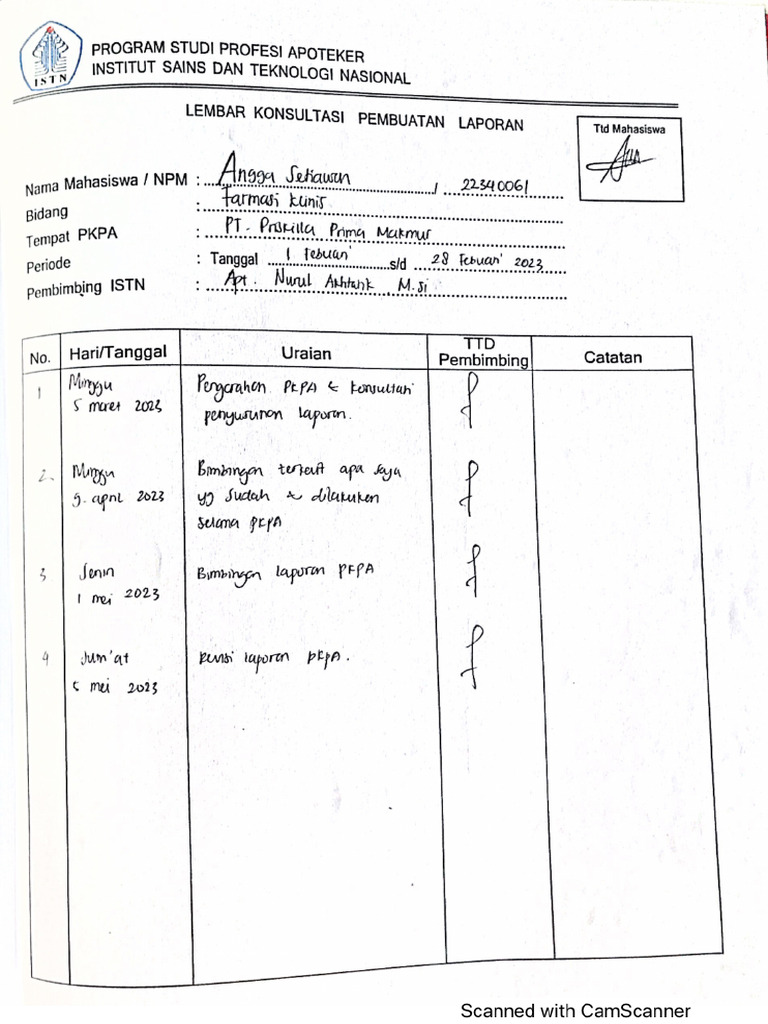 ISTN
PROGRAM STUDI PROFESI APOTEKER
INSTITUT SAINS DAN TEKNOLOGI NASIONAL
LEMBAR KONSULTASI PEMBUATAN LAPORAN
Ttd Mahasiswa
Nama Mahasiswa / NPM : Angga Setiawan / 22340061
Bidang : Farmasi Klinis
Tempat PKPA : PT. Priskilla Prima Makmur
Periode : Tanggal 1 Februari s/d 28 Februari 2023
Pembimbing ISTN : Apt. Nurul M.Si
No. Hari/Tanggal Uraian TTD Pembimbing Catatan
1 Minggu Pengarahan PKPA & konsultasi
5 maret 2023 penyusunan laporan.
2. Minggu Bimbingan terkait apa saja
9. april 2023 yg sudah dilakukan
selama PKPA
3 Senin Bimbingan laporan PKPA
1 mei 2023
4 Jum'at Revisi laporan PKPA.
5 mei 2023
Scanned with CamScanner